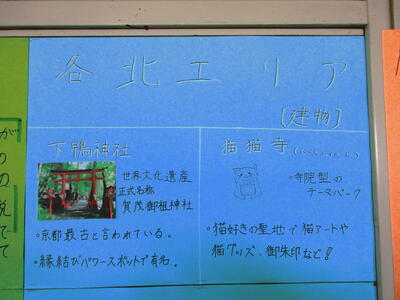 洛北エリア
[建物]
下鴨神社
世界文化遺産
正式名称
賀茂御祖神社
・京都最古と言われている。
・縁結びパワースポットで有名。
猫猫寺(にゃんにゃんじ)
・寺院型の
テーマパーク
・猫好きの聖地で猫アートや
猫グッズ、御朱印など!